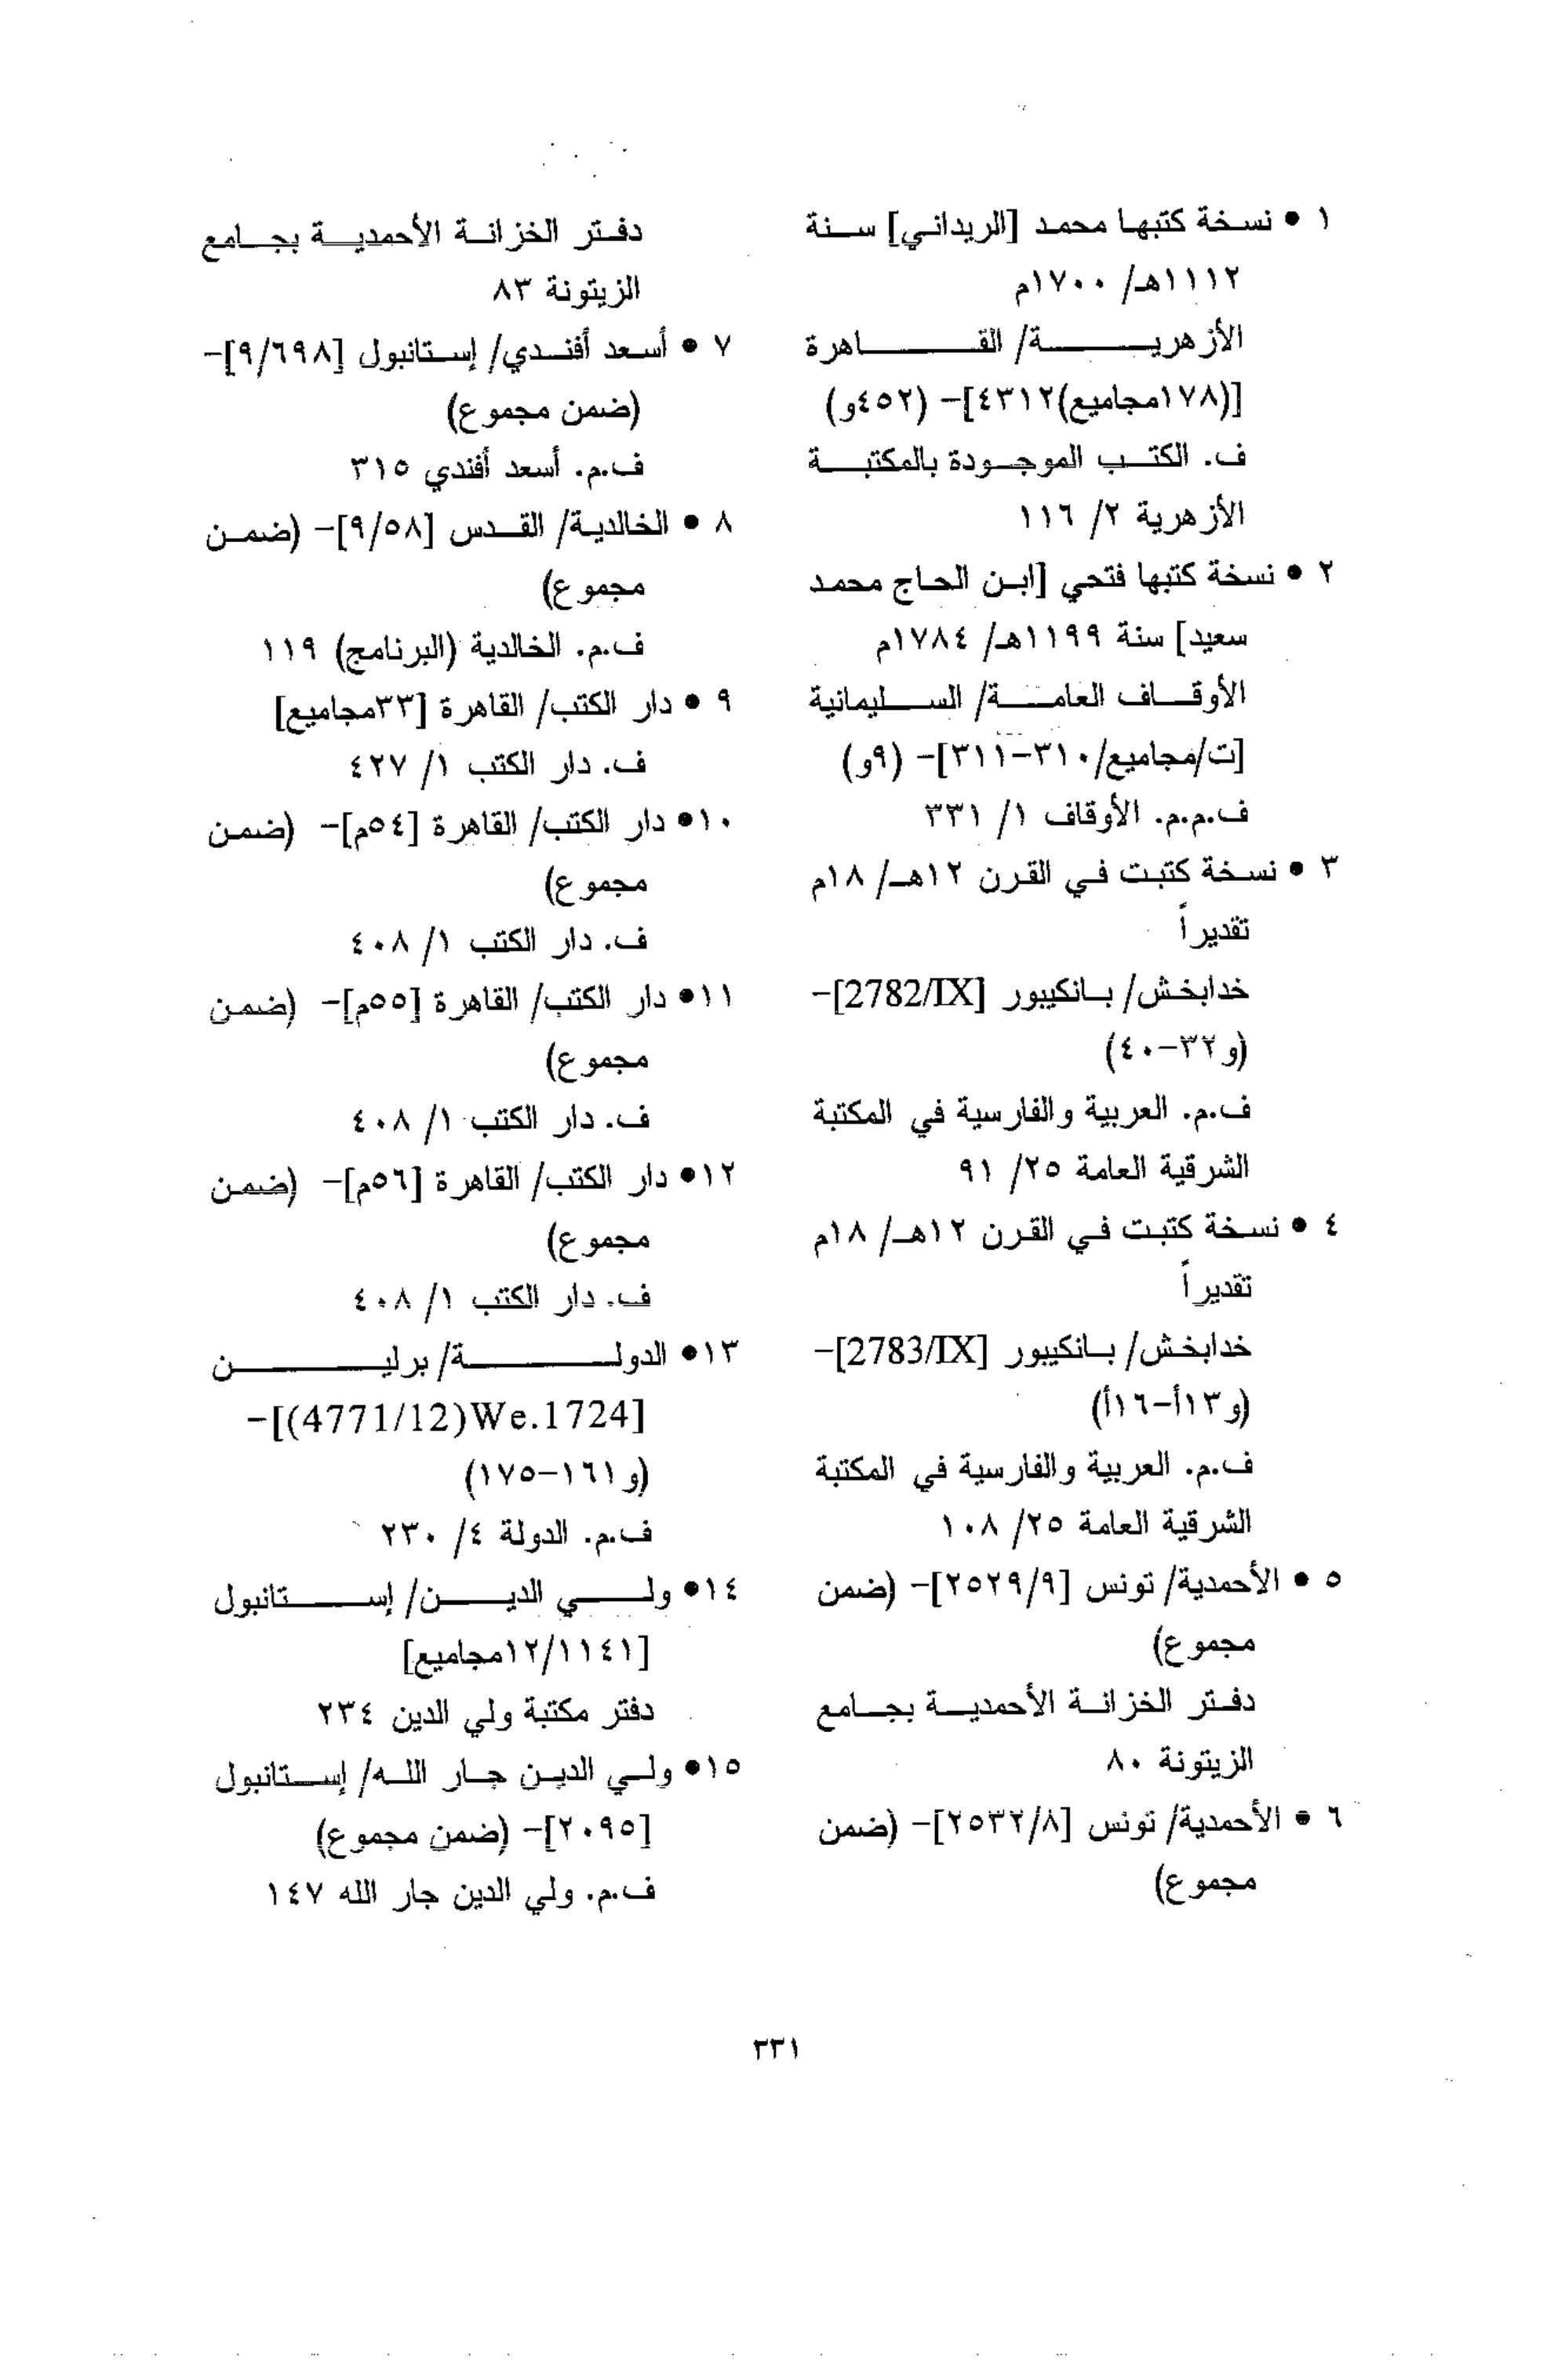 ١ • نسخة كتبها محمد [الريداني] سنة
١١١٢هـ/ ١٧٠٠م
الأزهرية/ القاهرة
[(١٧٨مجاميع)٤٣١٢]- (٤٥٢و)
ف. الكتب الموجودة بالمكتبة
الأزهرية ٢/ ١١٦
٢ • نسخة كتبها فتحي [ابن الحاج محمد
سعيد] سنة ١١٩٩هـ/ ١٧٨٤م
الأوقاف العامة/ السليمانية
[ت/مجاميع/٣١٠-٣١١]- (٩و)
ف.م.م. الأوقاف ١/ ٣٣١
٣ • نسخة كتبت في القرن ١٢هـ/ ١٨م
تقديراً
خدابخش/ بانكيبور [2782/IX]-
(و٣٢-٤٠)
ف.م. العربية والفارسية في المكتبة
الشرقية العامة ٢٥/ ٩١
٤ • نسخة كتبت في القرن ١٢هـ/ ١٨م
تقديراً
خدابخش/ بانكيبور [2783/IX]-
(و١٣أ-١٦أ)
ف.م. العربية والفارسية في المكتبة
الشرقية العامة ٢٥/ ١٠٨
٥ • الأحمدية/ تونس [٢٥٢٩/٩]- (ضمن
مجموع)
دفتر الخزانة الأحمدية بجامع
الزيتونة ٨٠
٦ • الأحمدية/ تونس [٢٥٣٢/٨]- (ضمن
مجموع)
دفتر الخزانة الأحمدية بجامع
الزيتونة ٨٣
٧ • أسعد أفندي/ إستانبول [٩/٦٩٨]-
(ضمن مجموع)
ف.م. أسعد أفندي ٣١٥
٨ • الخالدية/ القدس [٩/٥٨]- (ضمن
مجموع)
ف.م. الخالدية (البرنامج) ١١٩
٩ • دار الكتب/ القاهرة [٣٣مجاميع]
ف. دار الكتب ١/ ٤٢٧
١٠• دار الكتب/ القاهرة [٥٤م]- (ضمن
مجموع)
ف. دار الكتب ١/ ٤٠٨
١١• دار الكتب/ القاهرة [٥٥م]- (ضمن
مجموع)
ف. دار الكتب ١/ ٤٠٨
١٢• دار الكتب/ القاهرة [٥٦م]- (ضمن
مجموع)
ف. دار الكتب ١/ ٤٠٨
١٣• الدولة/ برلين
[We.1724(4771/12)]-
(و١٦١-١٧٥)
ف.م. الدولة ٤/ ٢٣٠
١٤• ولي الدين/ إستانبول
[١٢/١١٤١مجاميع]
دفتر مكتبة ولي الدين ٢٣٤
١٥• ولي الدين جار الله/ إستانبول
[٢٠٩٥]- (ضمن مجموع)
ف.م. ولي الدين جار الله ١٤٧
٣٣١